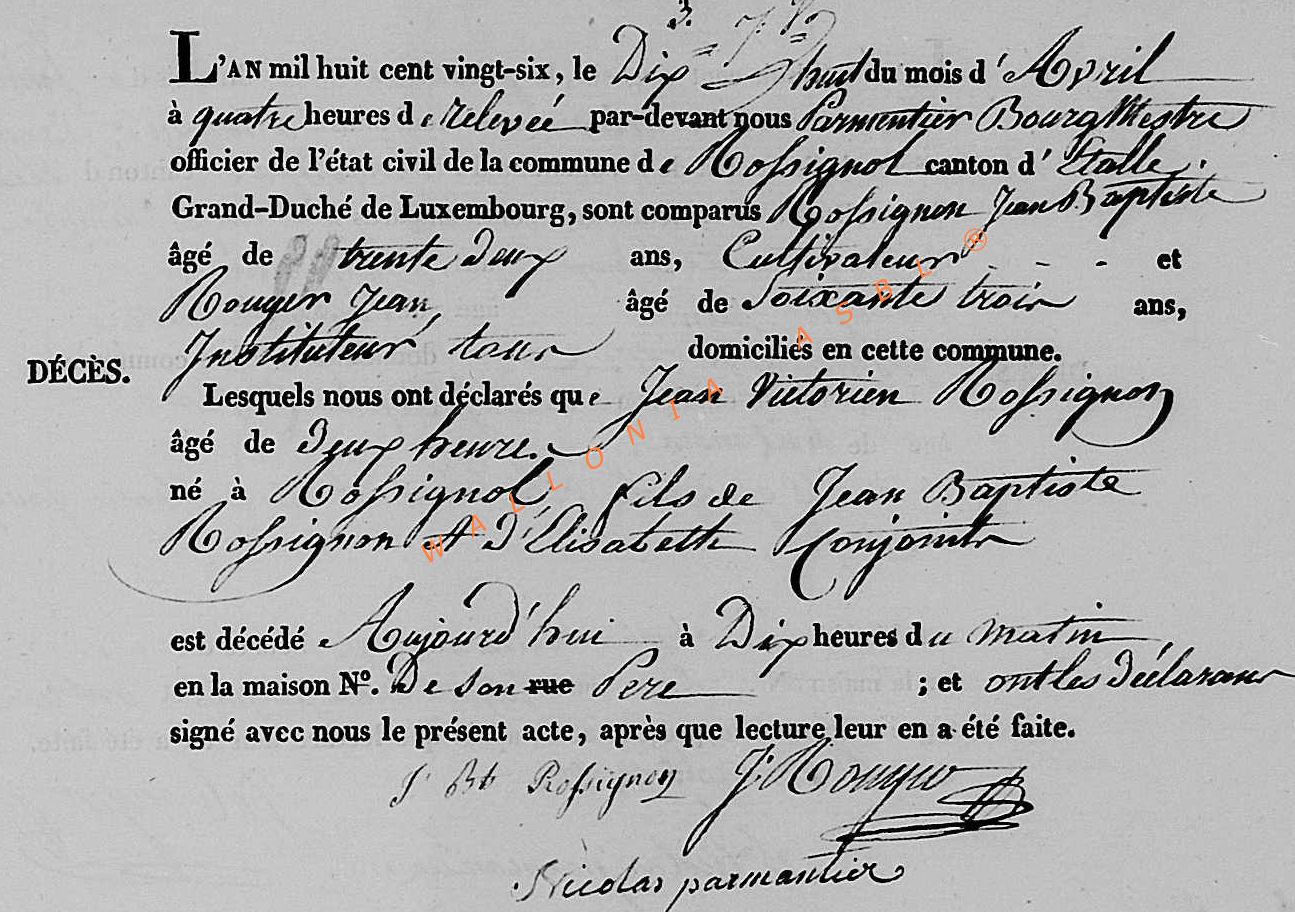 L'AN mil huit cent vingt-six, le Dix huit du mois d' Avril
à quatre heures de relevée par-devant nous Parmentier BourgMestre
officier de l'état civil de la commune de Rossignol canton d' Etalle.
Grand-Duché de Luxembourg, sont comparus Rossignon Jean Baptiste
âgé de trente deux ans, Cultivateur - - - et
Rouyer Jean, âgé de Soixante trois ans,
Instituteur tous domiciliés en cette commune.
DÉCÈS.
Lesquels nous ont déclarés que Jean Victorien Rossignon
âgé de Deux heure.
né à Rossignol fils de Jean Baptiste
Rossignon et d'Elisabeth Conjoints
est décédé Aujourd'hui à Dix heures du matin
en la maison Nº. De son rue Pere ; et ont les Déclarans
signé avec nous le présent acte, après que lecture leur en a été faite.
J Bte Rossignon J. Rouyer
Nicolas parmantier
WALLONIA ASBL ®